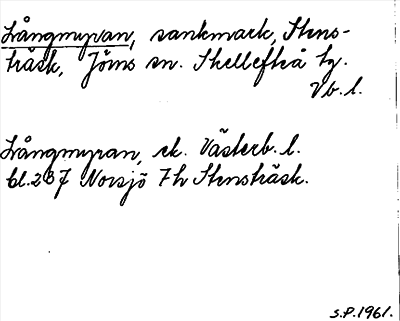 Långmyran, sankmark, Stens-
träsk, Jörns sn. Skellefteå tg.
Vb. l.
Långmyran, ek. Västerb. l.
bl. 237 Norsjö 7h Stensträsk.
S.P. 1961.